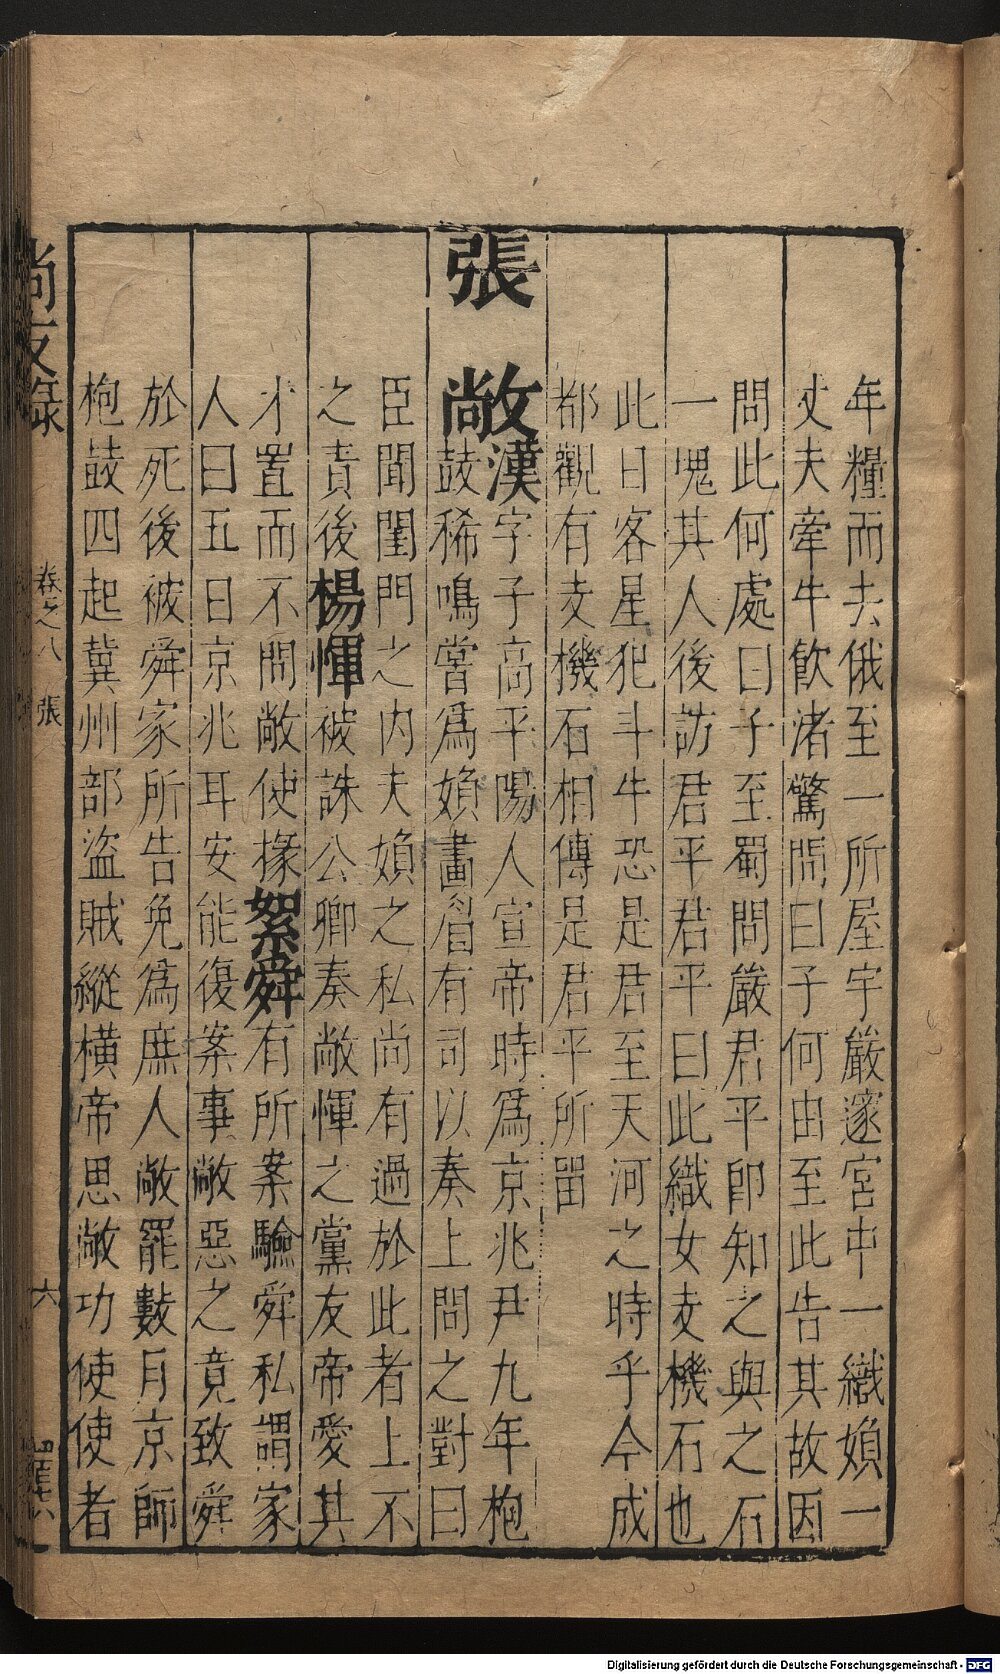 年糧而去俄至一所屋宇嚴邃宮中一織媍一
丈夫牽牛飮渚驚問曰子何由至此告其故因
問此何處曰子至蜀問嚴君平卽知之與之石
一塊其人後訪君平君平曰此織女支機石也
此日客星犯斗牛恐是君至天河之時乎今成
都觀有支機石相傳是君平所畱
張敞漢字子高平陽人宣帝時爲京兆尹九年枹
鼓稀鳴嘗爲媍畫眉有司以奏上問之對曰
臣聞閨門之內夫媍之私尚有過於此者上不
之責後楊惲被誅公卿奏敞惲之黨友帝愛其
才置而不問敞使掾絮舜有所案驗舜私謂家
人曰五日京兆耳安能復案事敞惡之竟致舜
於死後被舜家所告免爲庶人敞罷數月京師
枹鼓四起冀州部盜賊縱橫帝思敞功使使者
尚友錄 卷之八 張 六
Digitalisierung gefördert durch die Deutsche Forschungsgemeinschaft - DFG